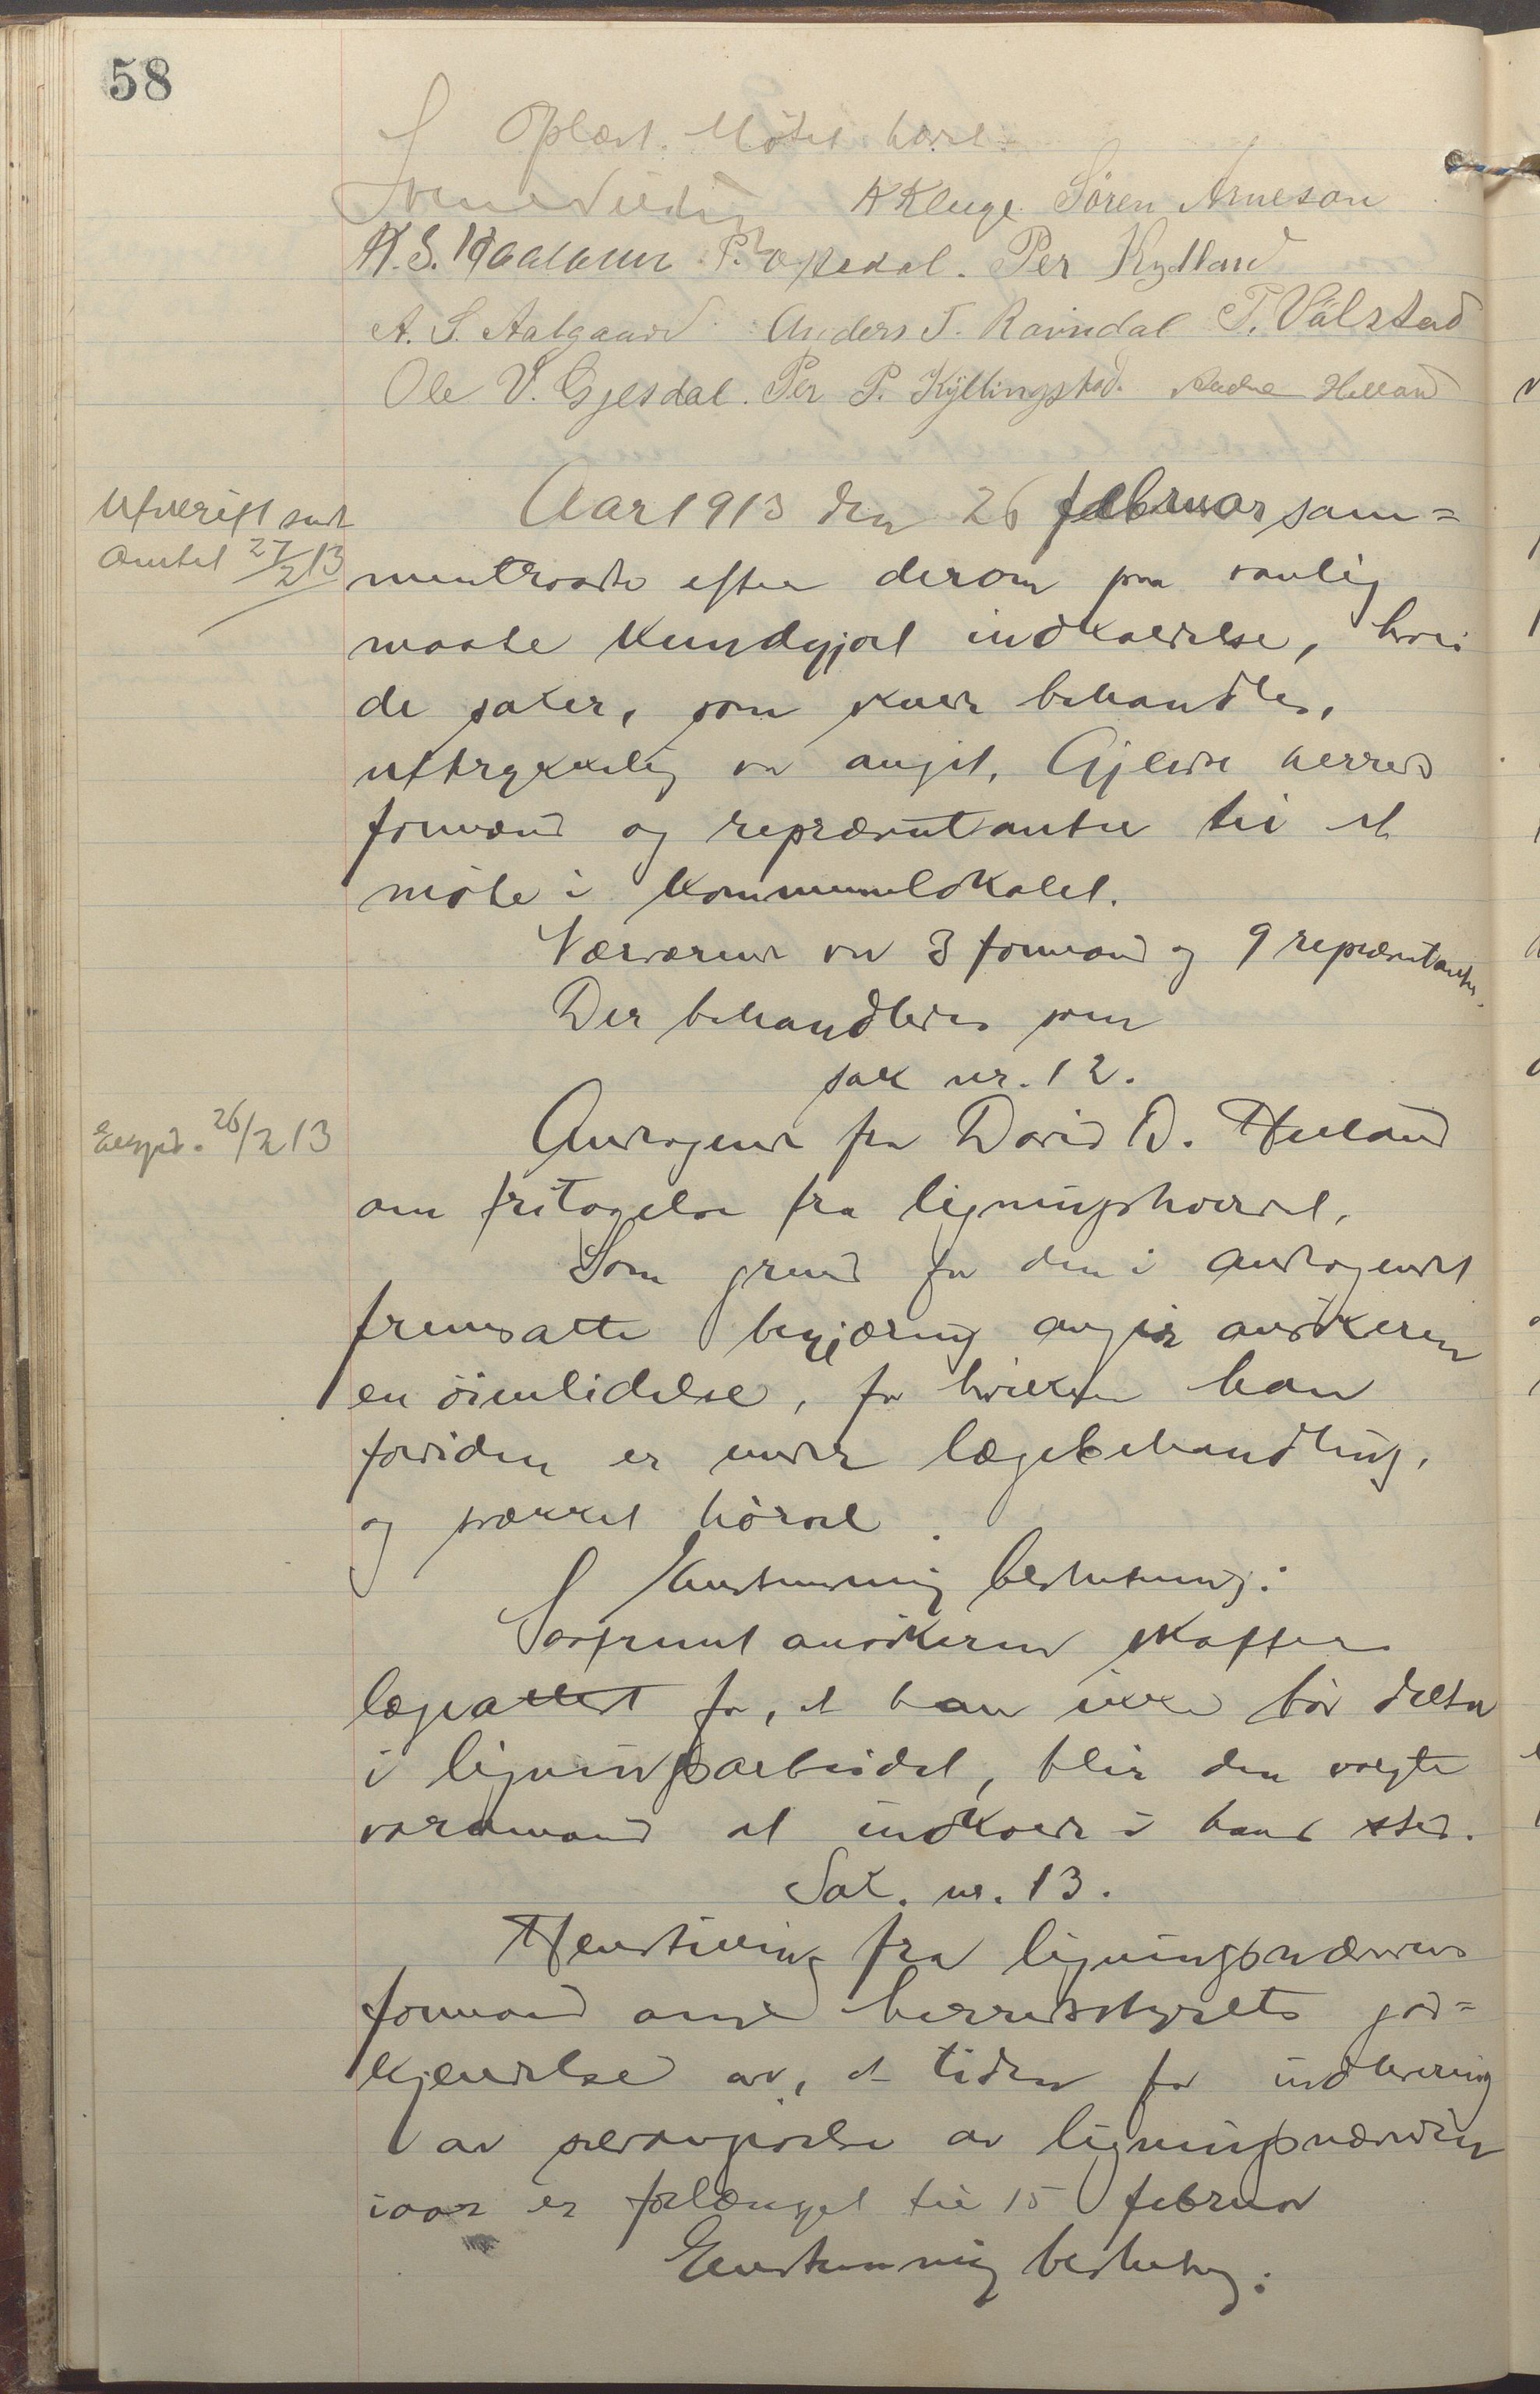 58
Oplæst. Møtet hævet.
K Kluge Søren Arneson
P. Opsdal. Per Kydland
A. S. Aalgaard Anders T. Ravndal T. Vålstad
Ole V. Gjesdal. Per P. Kyllingstad. Helland
Utskrift sendt
Amtet 27/2 13
Aar 1913 den 26 februar sam=
mentraadte efter derom paa vanlig
maate kundgjort indkaldelse, hvori
de saker, som skulde behandles,
uttrykkelig var angit, Gjesdal herreds
formænd og repræsentanter til et
møte i kommunelokalet.
Nærværende var 3 formænd og 9 repræsentanter.
Der behandledes som
sak nr. 12.
Exsped. 26/2 13
Andragende fra David D. Helland
om fritagelse fra ligningshvervet.
Som grund for den i andragendet
fremsatte begjæring angir ansökeren
en öienlidelse, for hvilken han
fortiden er under lægebehandling,
og svækket hörsel.
Enstemmig beslutning:
Saafremt ansökeren skaffer
lægeattest for, at han ikke bör delta
i ligningsarbeidet, blir den valgte
varamand at indkalde i hans sted.
Sak. nr. 13.
Henstilling fra ligningsnævndens
formand om herredsstyrets god=
kjendelse av, at tiden for indlevering
av selvangivelse av ligningsnævnden
iaar er forlænget til 15 februar
Enstemmig beslutning: